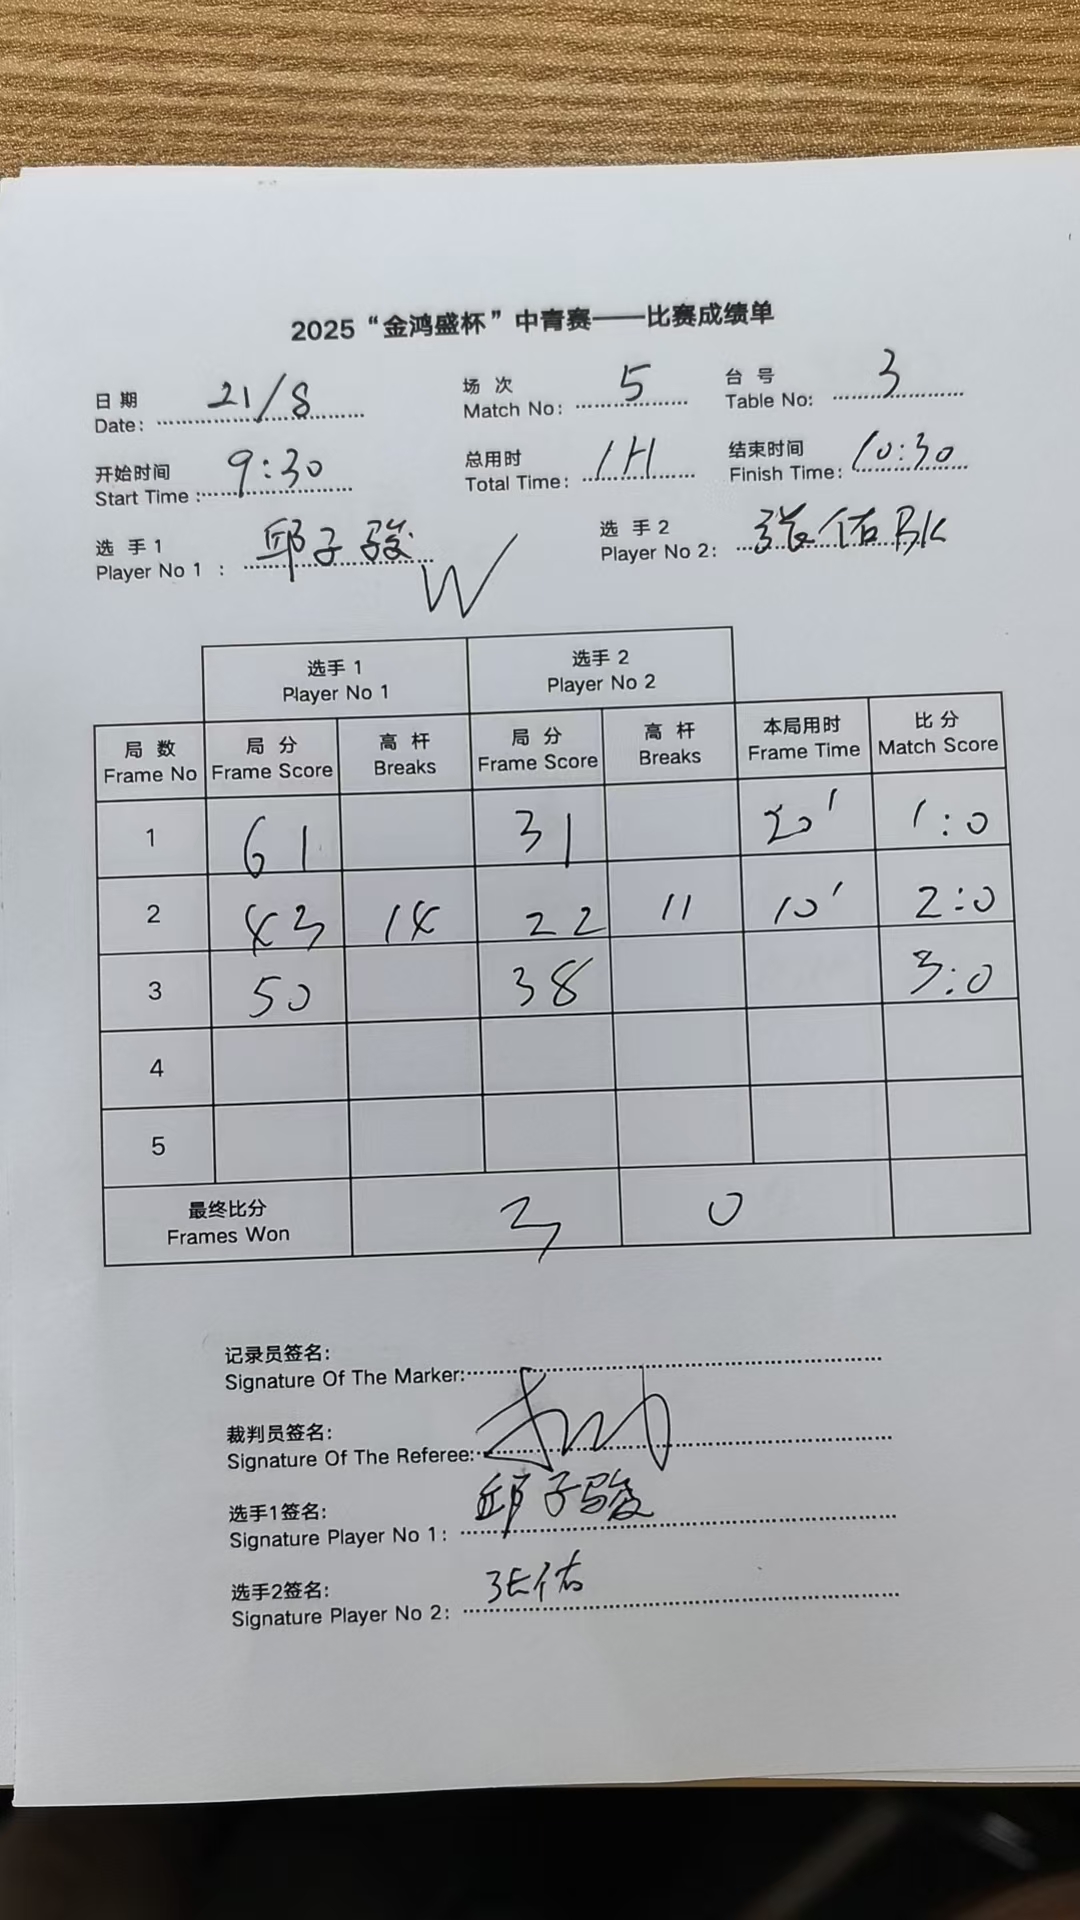 2025“金鸿盛杯”中青赛——比赛成绩单
日 期 21/8 场 次 5 台 号 3
Date: Match No: Table No:
开始时间 9:30 总用时 1H 结束时间 10:30
Start Time : Total Time: Finish Time:
选 手1 邱子骏 选 手2 张佑
Player No 1 : W Player No 2:
选手 1 选手 2
Player No 1 Player No 2
局 数 局 分 高 杆 局 分 高 杆 本局用时 比 分
Frame No Frame Score Breaks Frame Score Breaks Frame Time Match Score
1 61 31 20' 1:0
2 43 14 22 11 10' 2:0
3 50 38 3:0
4
5
最终比分 3 0
Frames Won
记录员签名:
Signature Of The Marker:
裁判员签名:
Signature Of The Referee:
选手1签名: 邱子骏
Signature Player No 1:
选手2签名: 张佑
Signature Player No 2: